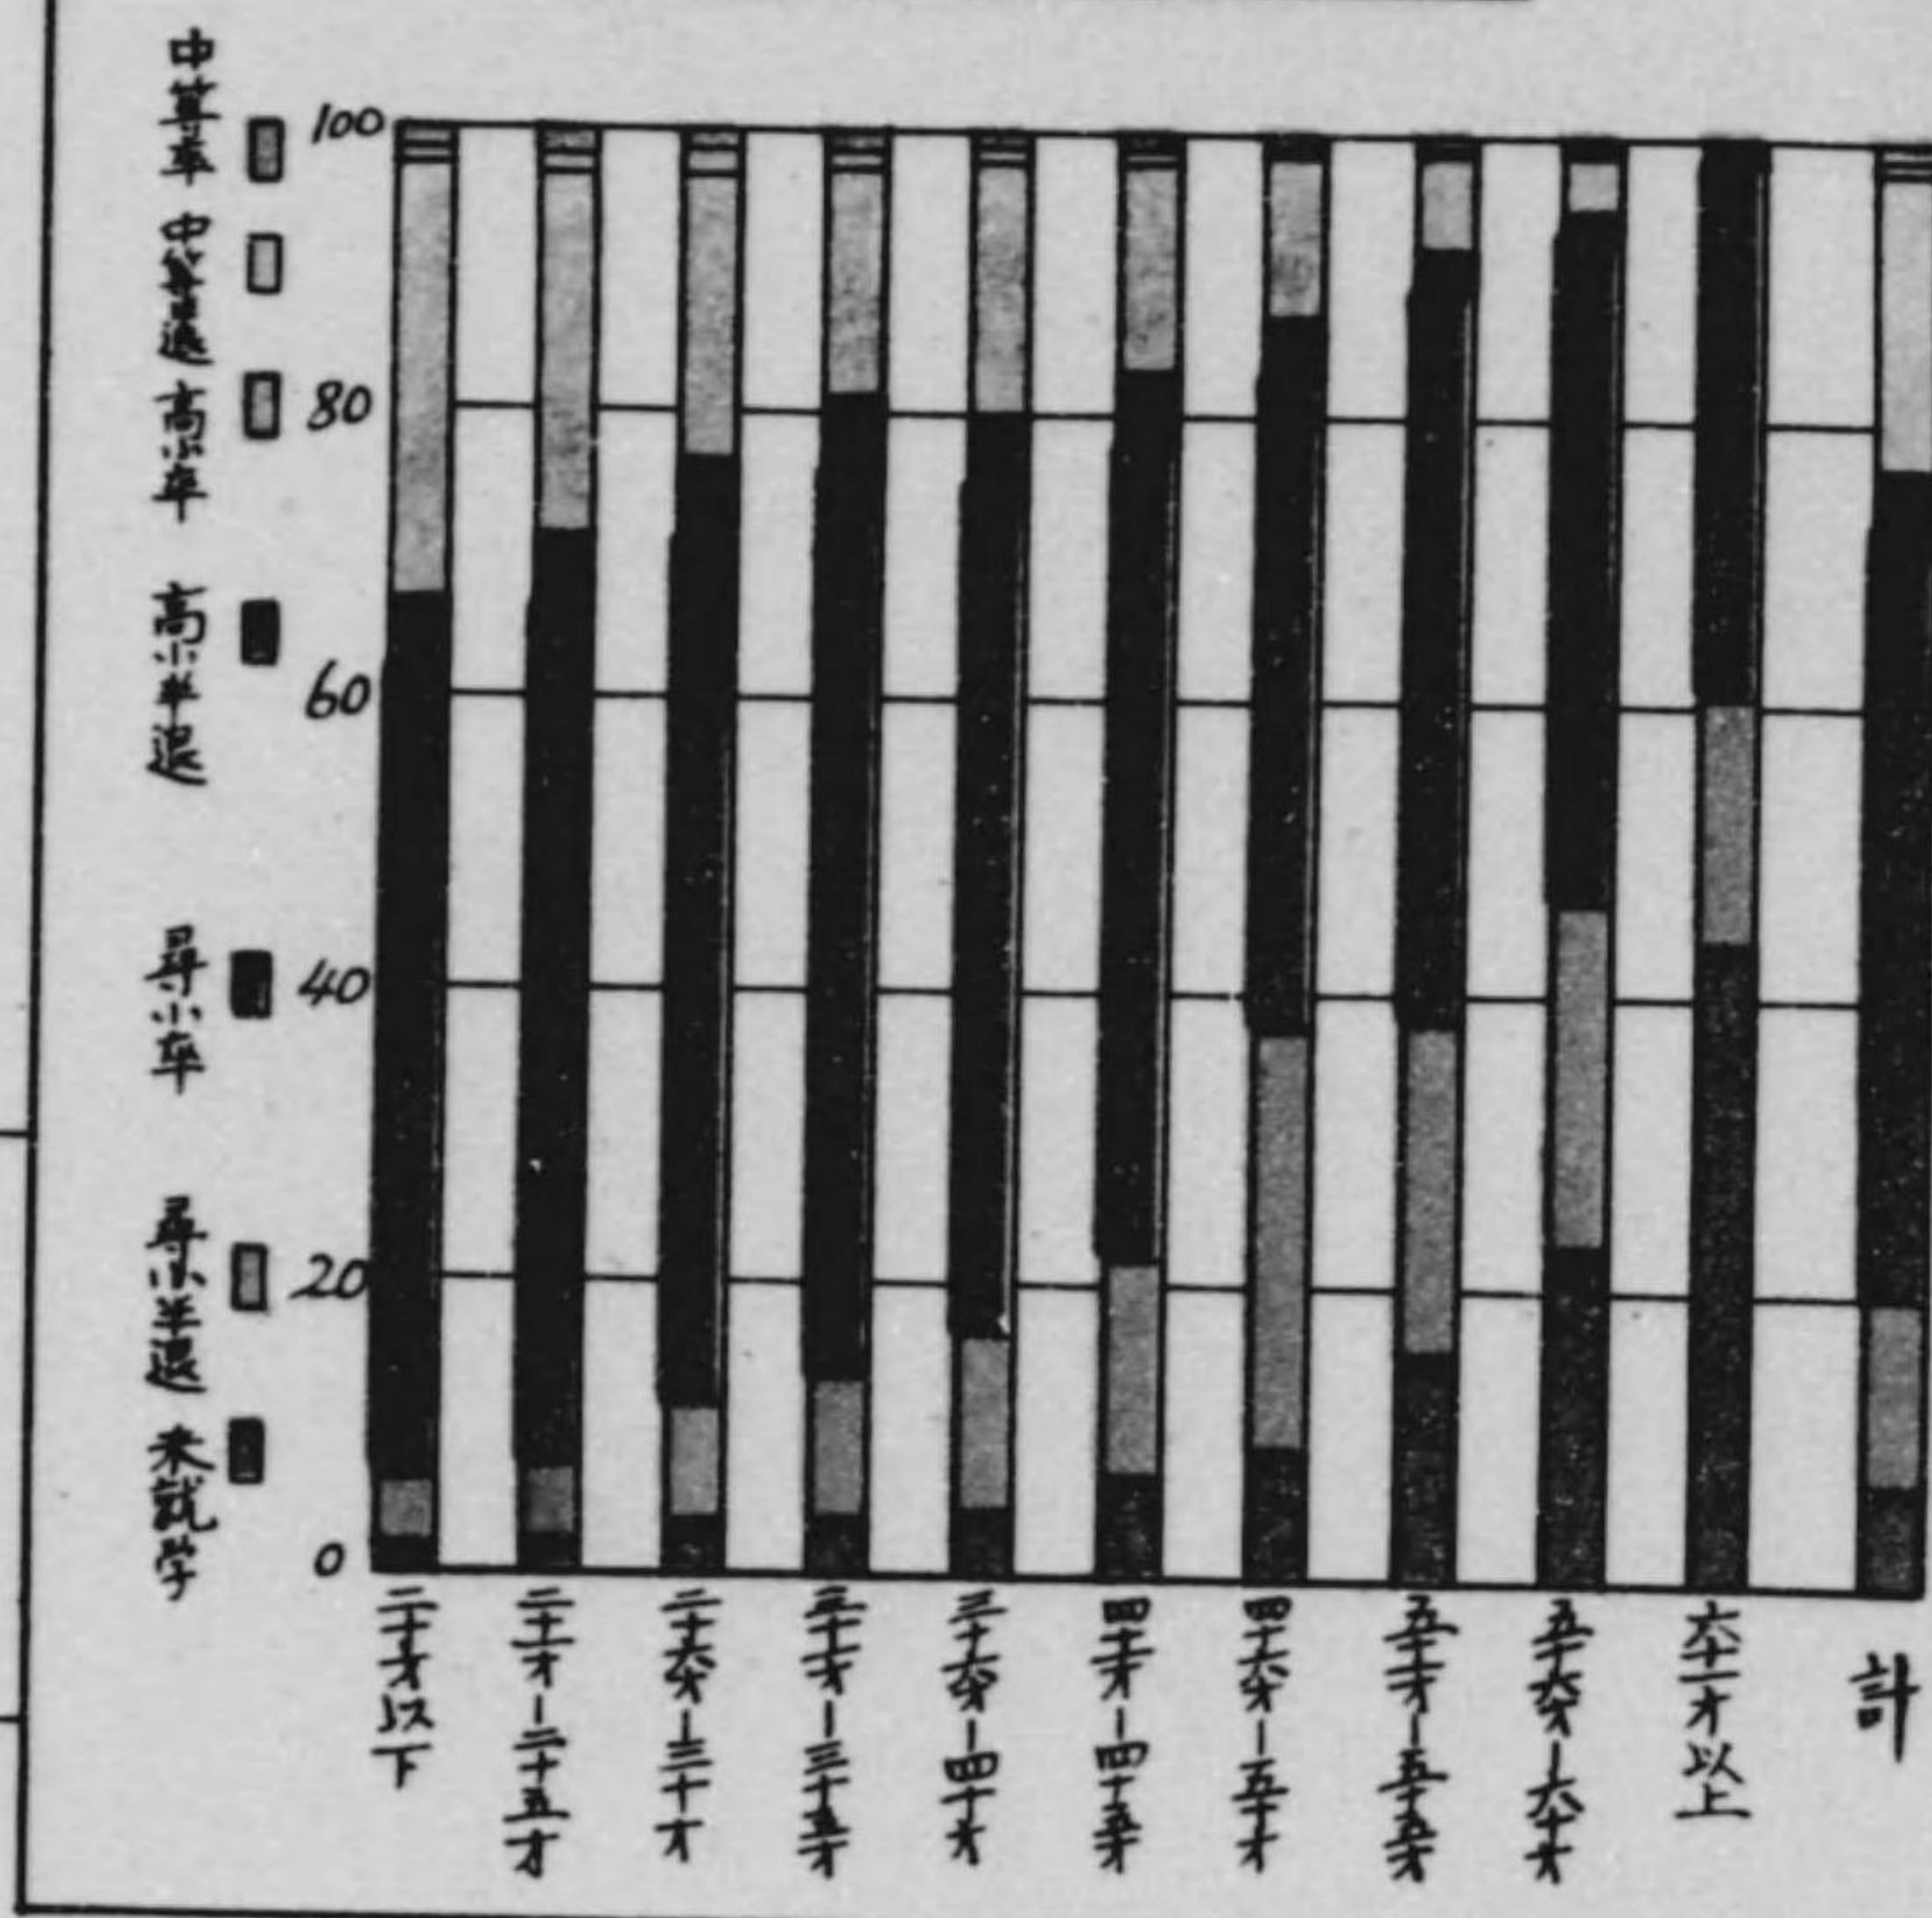 中等卒
中等半退
高小卒
高小半退
尋小卒
尋小半退
未就学
100
80
60
40
20
0
二十才以下
二十一才-二十五才
二十六才-三十才
三十一才-三十五才
三十六才-四十才
四十一才-四十五才
四十六才-五十才
五十一才-五十五才
五十六才-六十才
六十一才以上
計